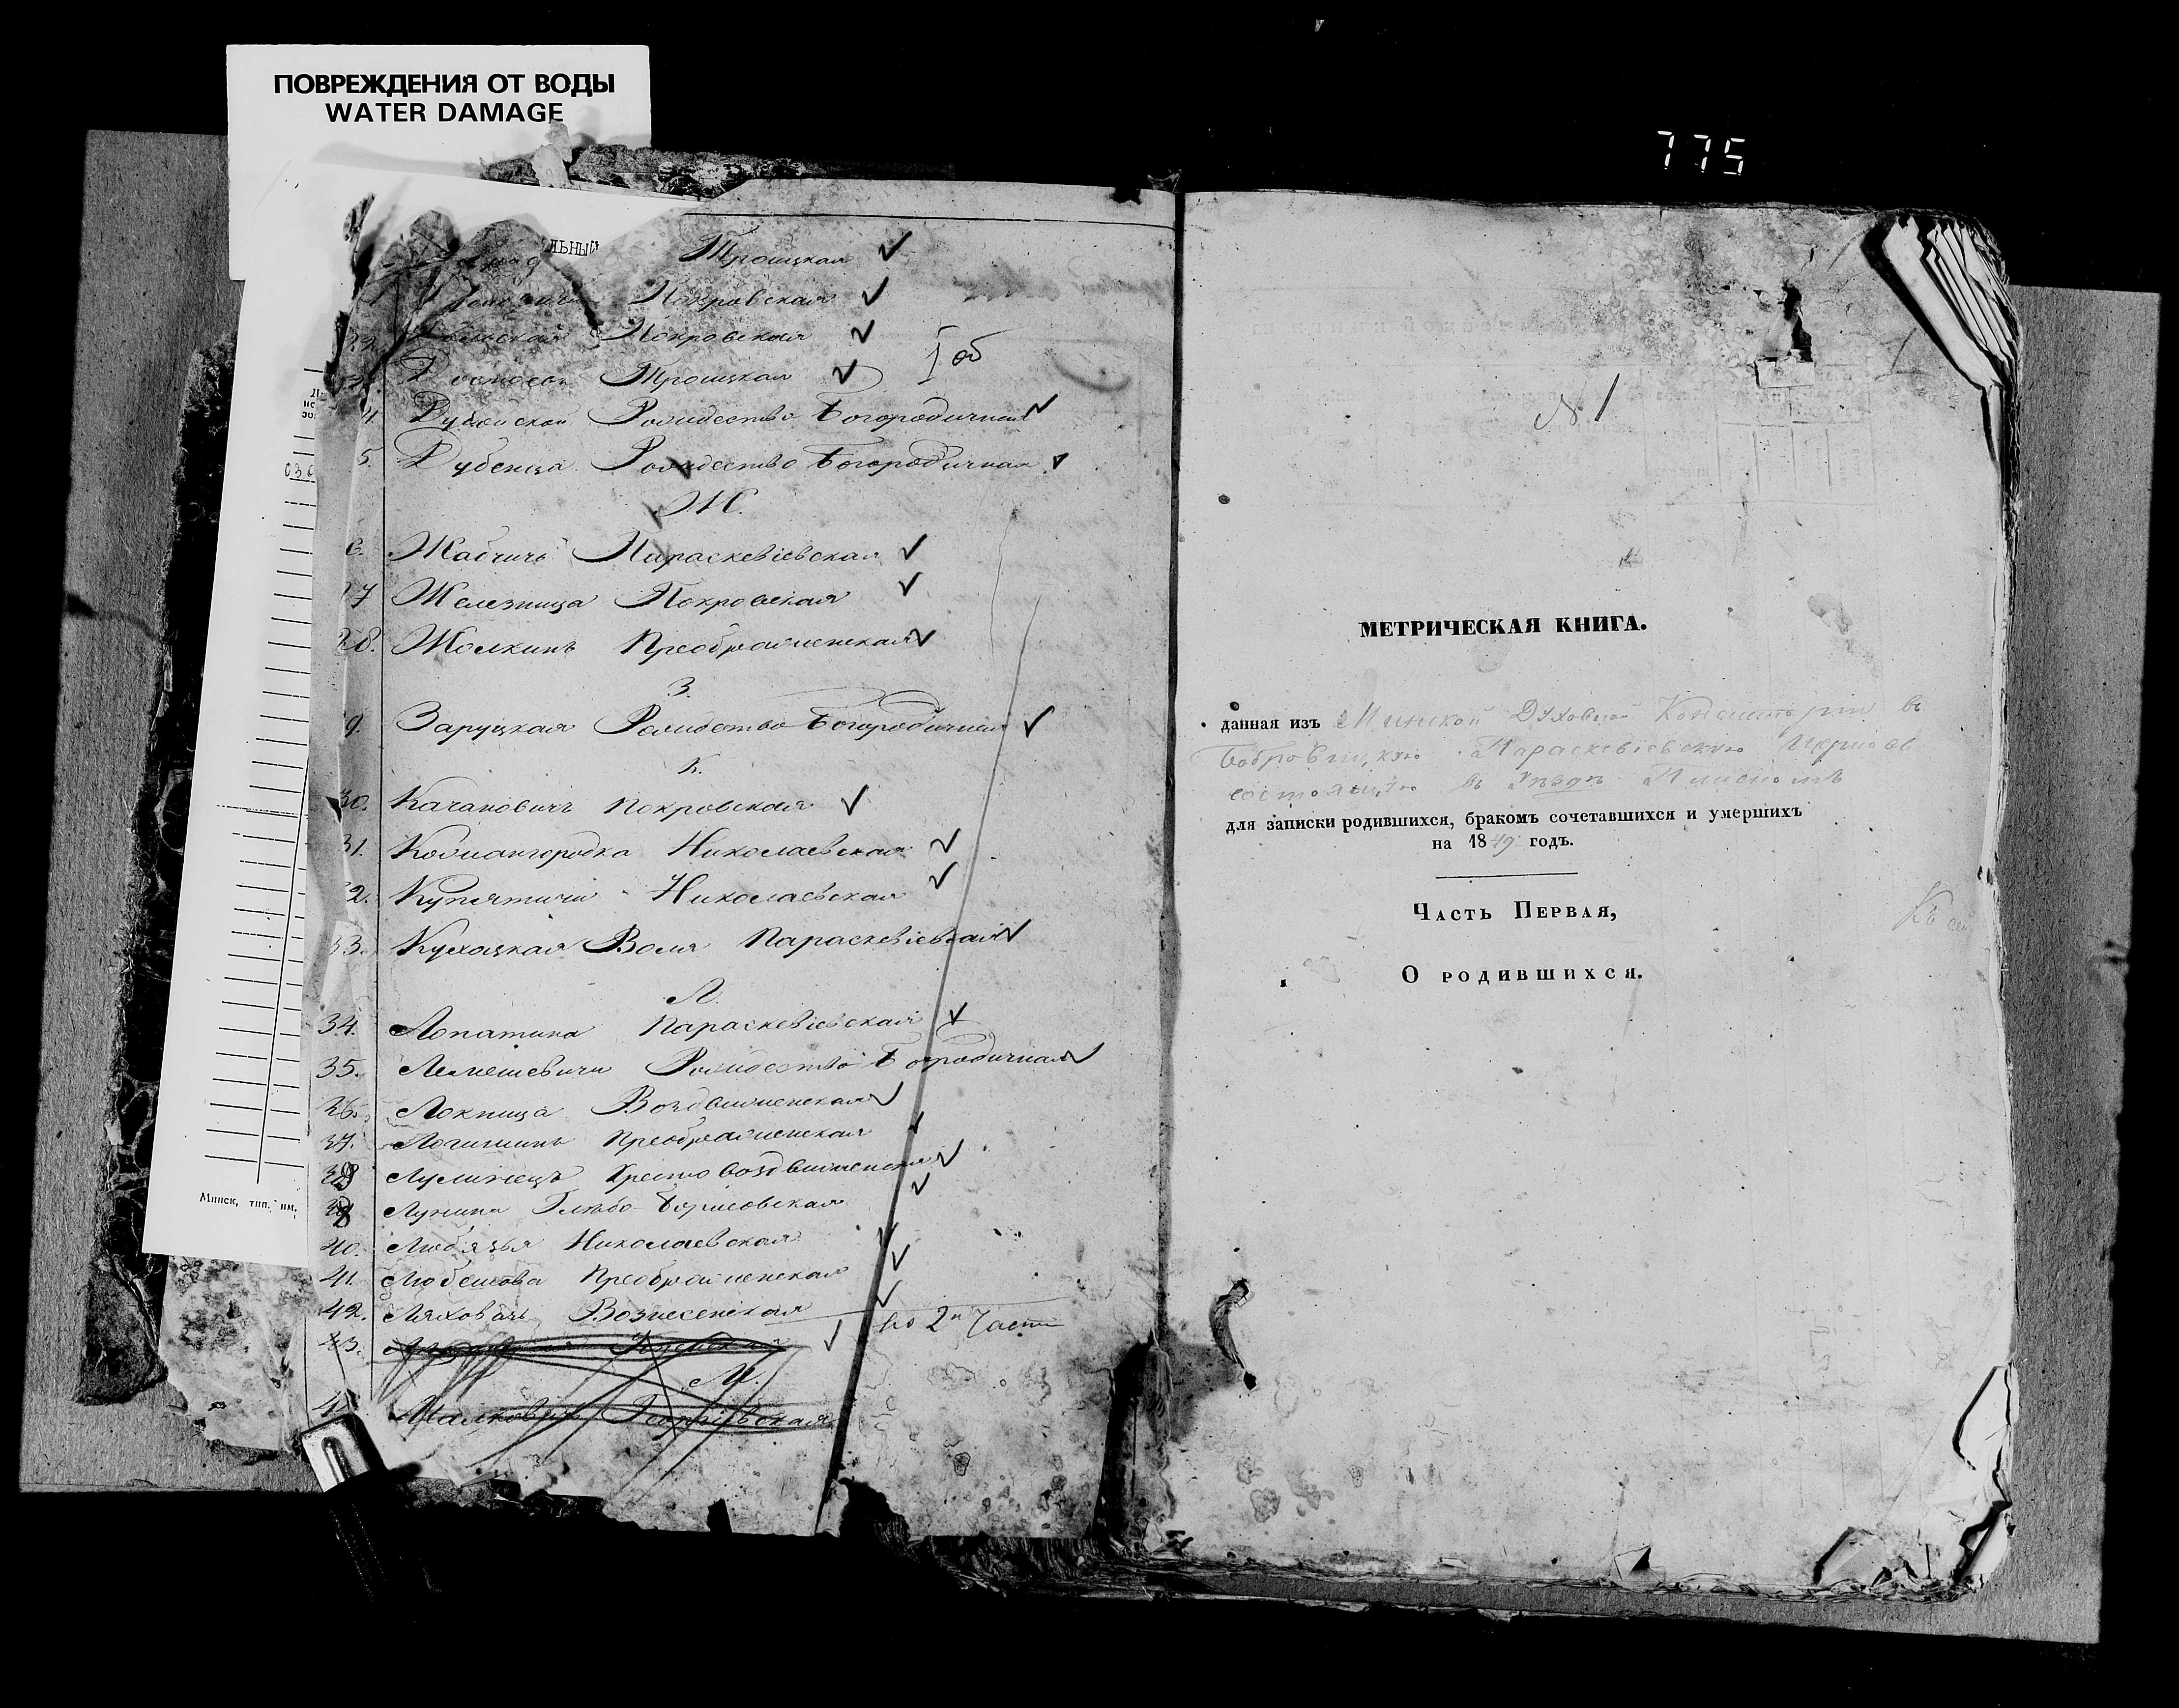 ПОВРЕЖДЕНИЯ ОТ ВОДЫ
WATER DAMAGE
775
ЛЬНЫЙ
Троицкая
Покровская
Покровская
Троицкая
I об
4. Рождество Богородичная
5. Дубенца Рождество Богородичная
Ж.
Жабчичь Параскевіевская
27 Железница Покровская
28. Жолкинь Преображенская
З.
9. Заруцкая Рождество Богородичная
К.
30. Качановичъ Покровская
31. Кожангородка Николаевская
32. Купятичи Николаевская
33. Кухоцкая Воля Параскевіевская
Л.
34. Лопатина Параскевіевская
35. Лемешевичи Рождество Богородичная
36. Локница Воздвиженская
37. Логишинъ Преображенская
38 Лунинецъ Кресто Воздвиженская
39 Лунина Глѣбо-Борисовская
40. Любязья Николаевская
41. Любешова Преображенская
42. Ляховичь Вознесенская
43.
во 2й Части
М.
Малковичь Георгіевская
Минск, тип. им.
03.0
№ 1
МЕТРИЧЕСКАЯ КНИГА.
данная изъ Минской Духовной Консисторіи въ
Бобровицкую Параскевіевскую Церковь
состоящую въ Уѣздѣ Пинскомъ
для записки родившихся, бракомъ сочетавшихся и умершихъ
на 1849 годъ.
Часть Первая,
О родившихся.